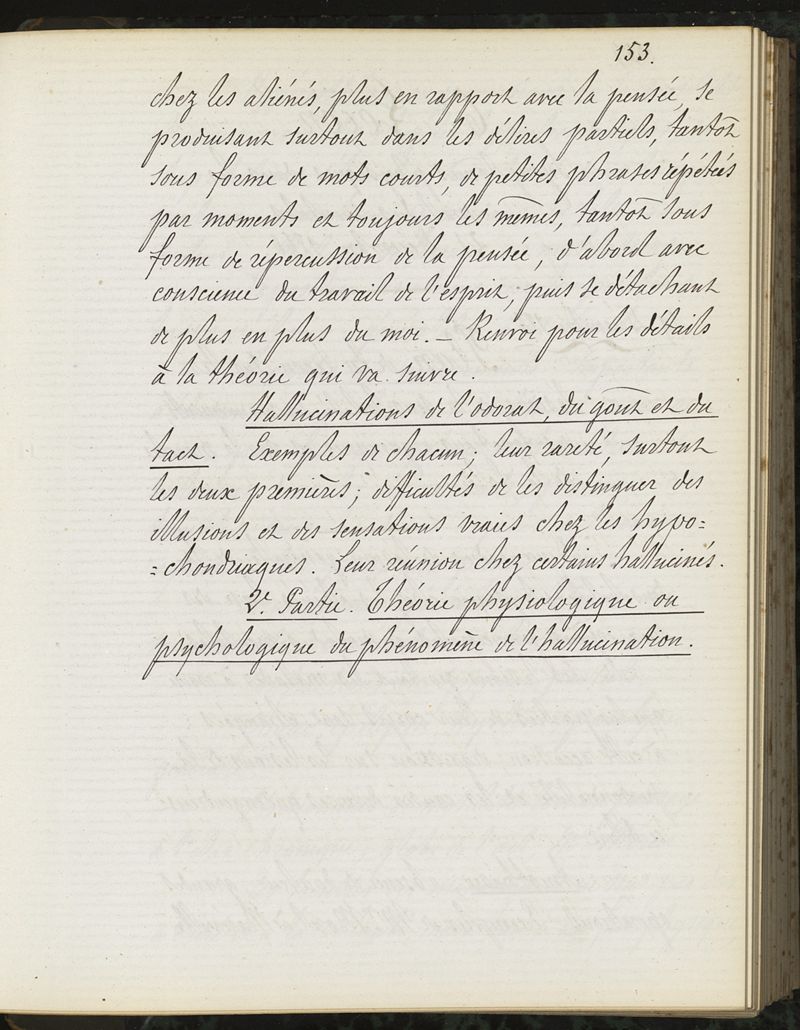 153.
chez les aliénés, plus en rapport avec la pensée, se
produisant surtout dans les délires partiels, tantôt
sous forme de mots courts, de petites phrases répétées
par moments et toujours les mêmes, tantôt sous
forme de répercussion de la pensée, d'abord avec
conscience du travail de l'esprit, puis se détachant
de plus en plus du moi. — Renvoi pour les détails
à la théorie qui va suivre.
Hallucinations de l'odorat, du goût et du
tact. Exemples de chacun; leur rareté, surtout
les deux premières; difficultés de les distinguer des
illusions et des sensations vraies chez les hypo=
=chondriaques. Leur réunion chez certains hallucinés.
2e. Partie. Théorie physiologique ou
psychologique du phénomène de l'hallucination.